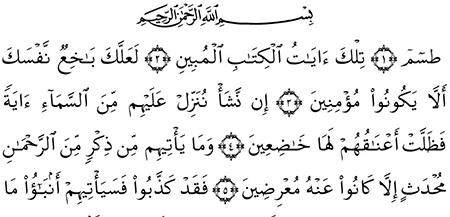 بِسْمِ اللَّهِ الرَّحْمَٰنِ الرَّحِيمِ
طسٓمٓ ﴿١﴾ تِلْكَ ءَايَاتُ الْكِتَابِ الْمُبِينِ ﴿٢﴾ لَعَلَّكَ بَاخِعٌ نَّفْسَكَ
أَلَّا يَكُونُوا۟ مُؤْمِنِينَ ﴿٣﴾ إِن نَّشَأْ نُنَزِّلْ عَلَيْهِم مِّنَ السَّمَآءِ ءَايَةً
فَظَلَّتْ أَعْنَاقُهُمْ لَهَا خَاضِعِينَ ﴿٤﴾ وَمَا يَأْتِيهِم مِّن ذِكْرٍ مِّنَ الرَّحْمَٰنِ
مُحْدَثٍ إِلَّا كَانُوا۟ عَنْهُ مُعْرِضِينَ ﴿٥﴾ فَقَدْ كَذَّبُوا۟ فَسَيَأْتِيهِمْ أَنبَٰٓؤُا۟ مَا